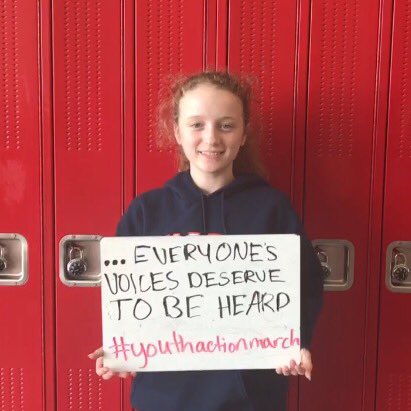 ... EVERYONE'S
VOICES DESERVE
TO BE HEARD
#youthactionmarch